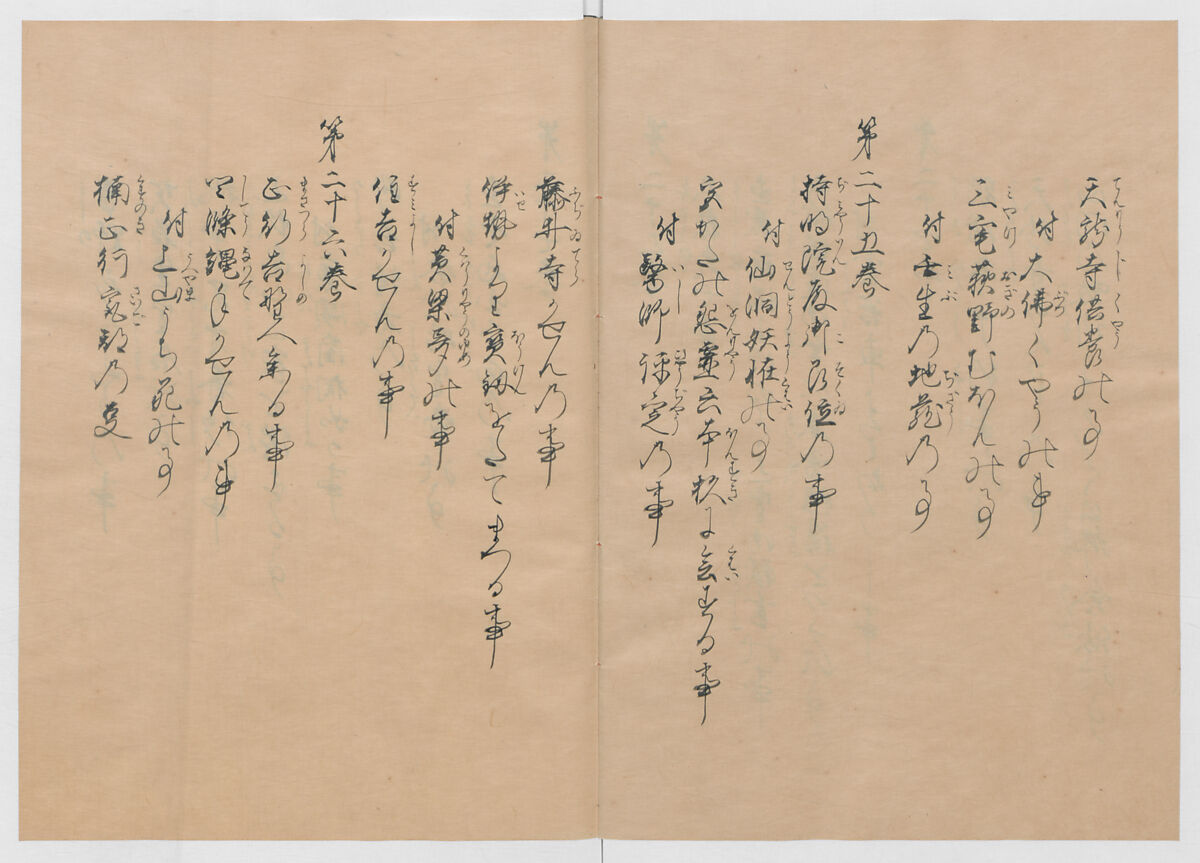 天龍寺供養の事
付大佛くやうの事
三宅荻野むほんの事
付壬生乃地蔵の事
第二十五巻
持明院殿御即位乃事
付仙洞妖怪の事
宮かたの怨霊六本杉に会する事
付医師評定乃事
藤井寺かせん乃事
伊勢より宝剣をたてまつる事
付黄梁夢の事
住吉かせん乃事
第二十六巻
正行吉野へ参る事
四條縄手かせん乃事
付上山うち死の事
楠正行最期乃事